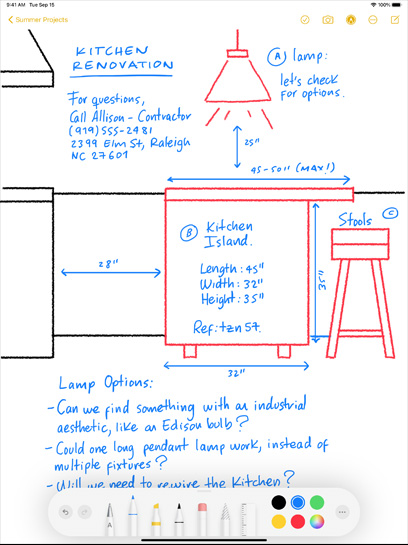 9:41 AM Tue Sep 15
100%
Summer Projects
KITCHEN
RENOVATION
For questions,
Call Allison - Contractor
(919) 555-2481
2399 Elm St, Raleigh
NC 27601
A lamp:
let's check
for options.
25"
45-50" (MAX!)
B Kitchen
Island.
Length: 45"
Width: 32"
Height: 35"
Ref: tzn 57.
28"
35"
32"
Stools C
Lamp Options:
- Can we find something with an industrial
aesthetic, like an Edison bulb?
- Could one long pendant lamp work, instead of
multiple fixtures?
- Will we need to rewire the Kitchen?
A